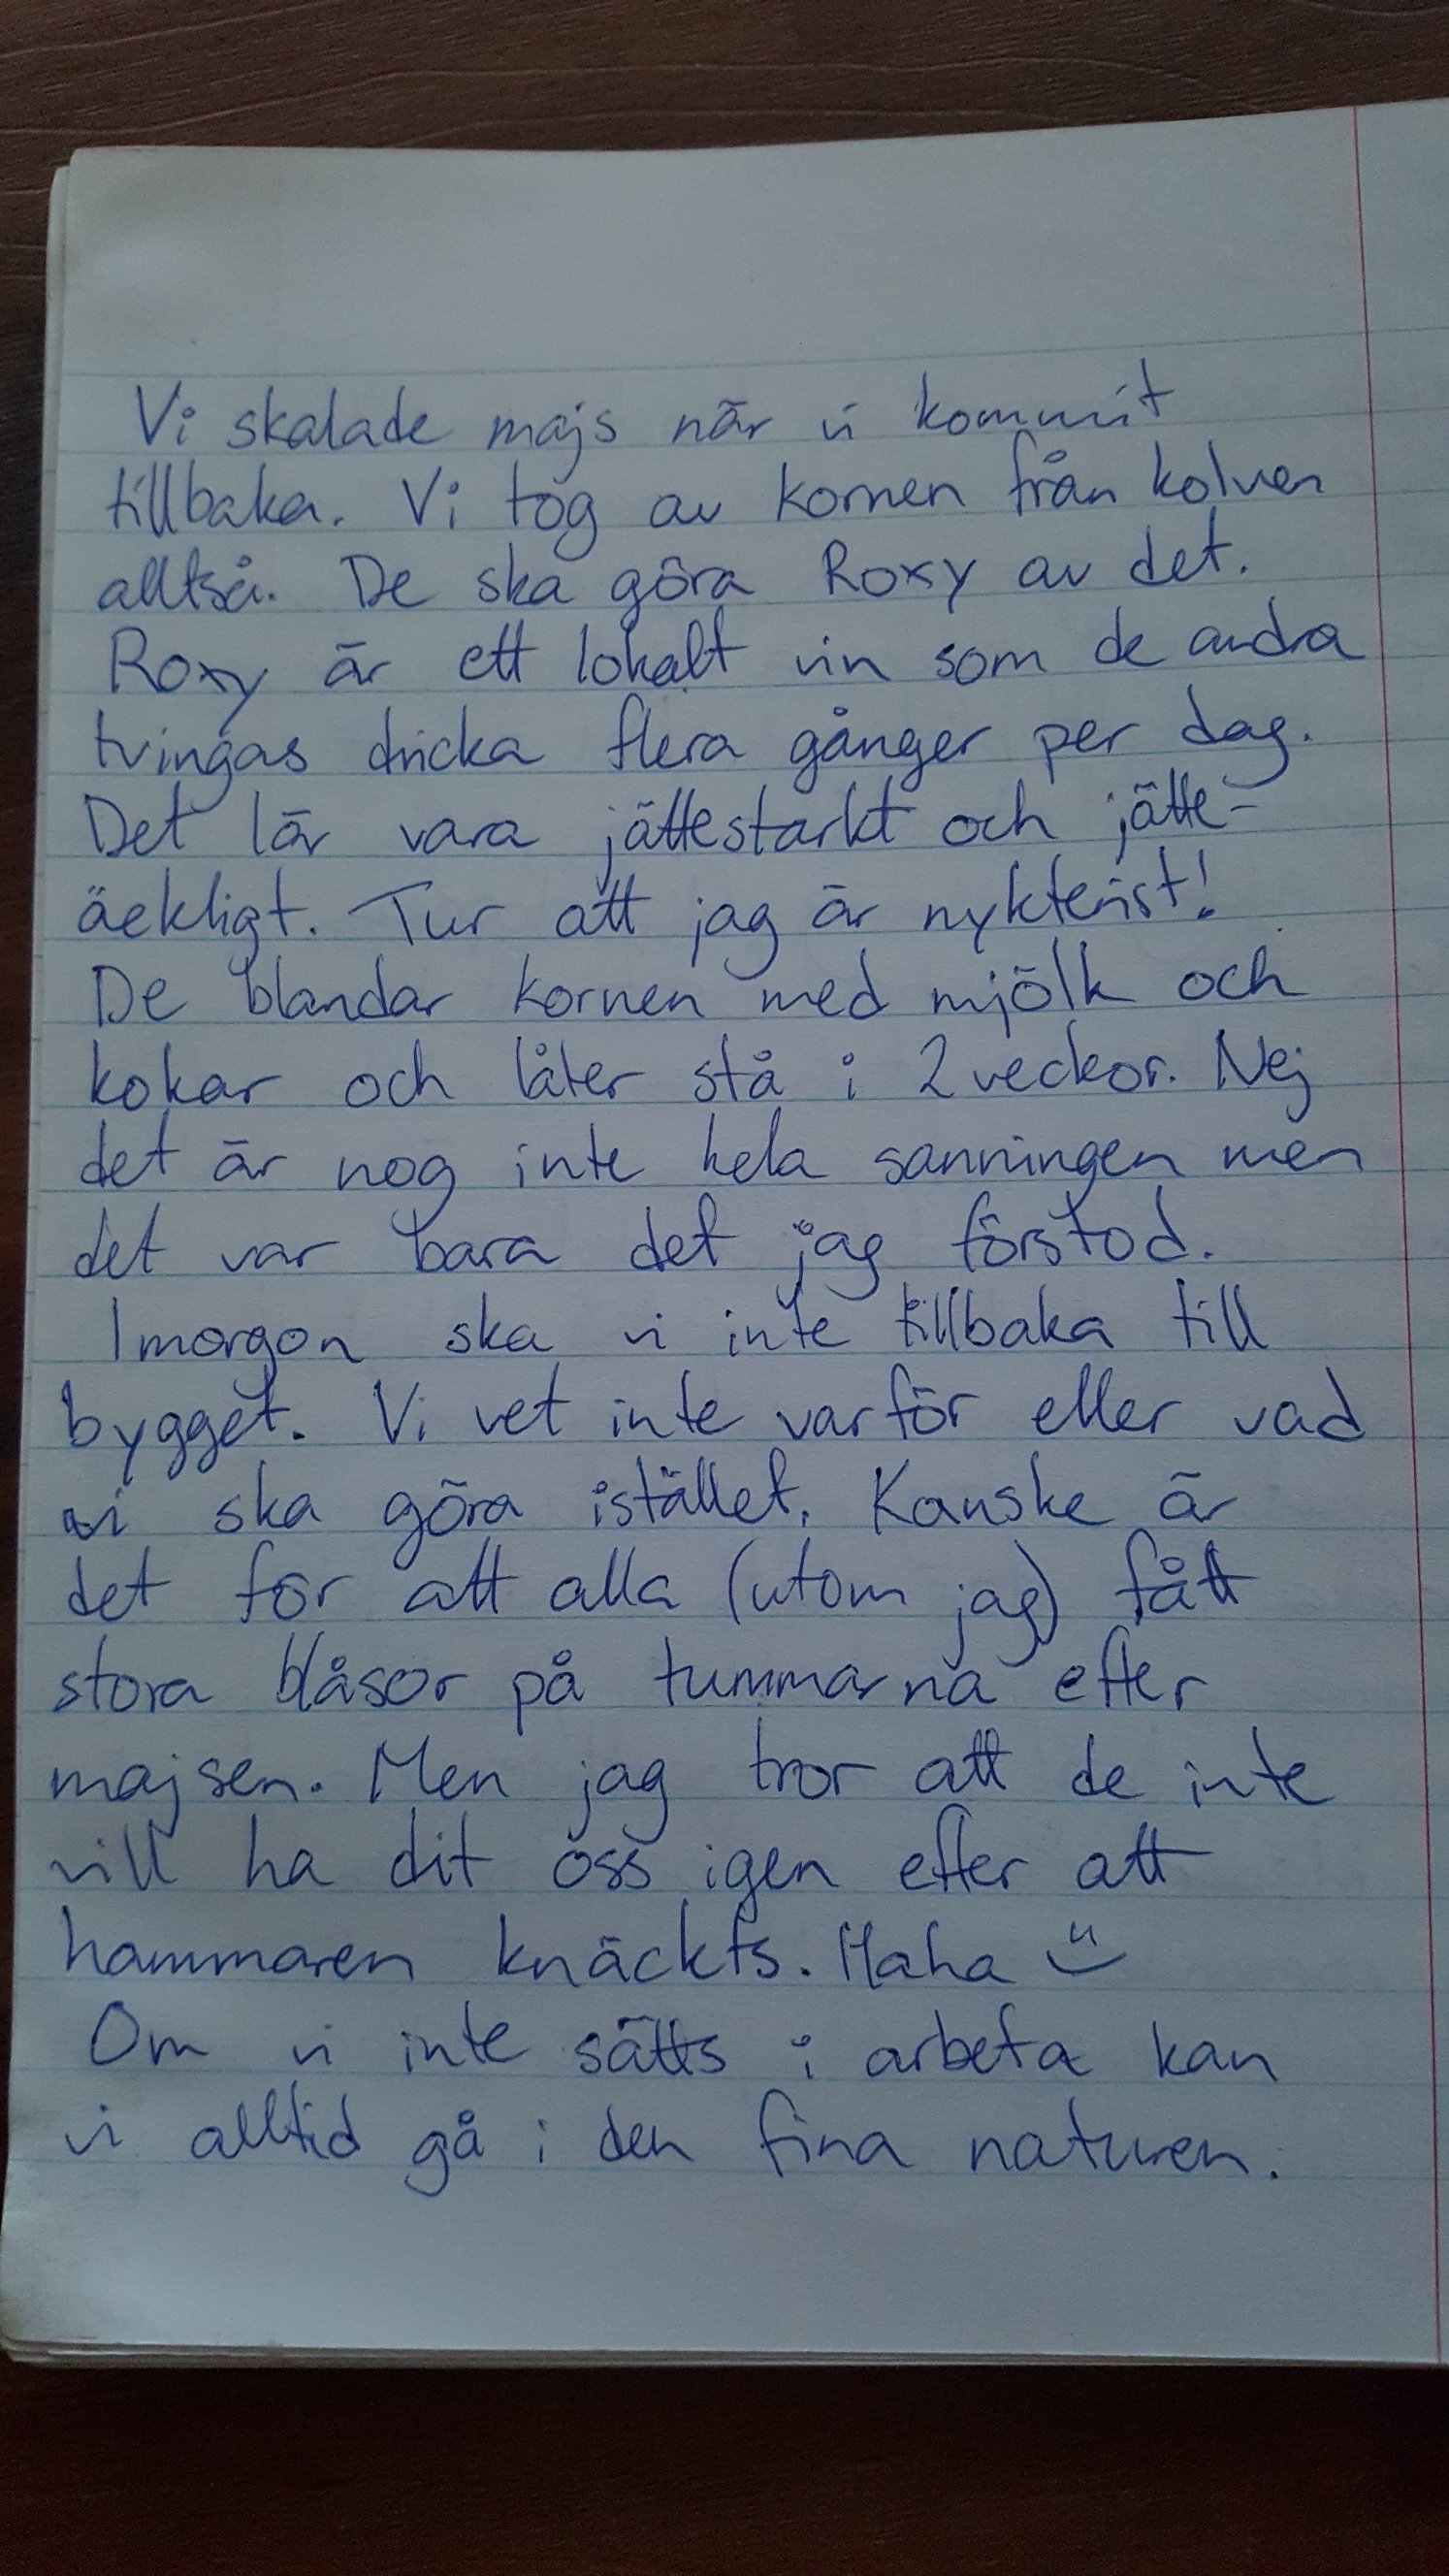 Vi skalade majs när vi kommit
tillbaka. Vi tog av kornen från kolven
alltså. De ska göra Roxy av det.
Roxy är ett lokalt vin som de andra
tvingas dricka flera gånger per dag.
Det lär vara jättestarkt och jätte-
äckligt. Tur att jag är nykterist!
De blandar kornen med mjölk och
kokar och låter stå i 2 veckor. Nej
det är nog inte hela sanningen men
det var bara det jag förstod.
Imorgon ska vi inte tillbaka till
bygget. Vi vet inte varför eller vad
vi ska göra istället. Kanske är
det för att alla (utom jag) fått
stora blåsor på tummarna efter
majsen. Men jag tror att de inte
vill ha dit oss igen efter att
hammaren knäckts. Haha :)
Om vi inte sätts i arbeta kan
vi alltid gå i den fina naturen.